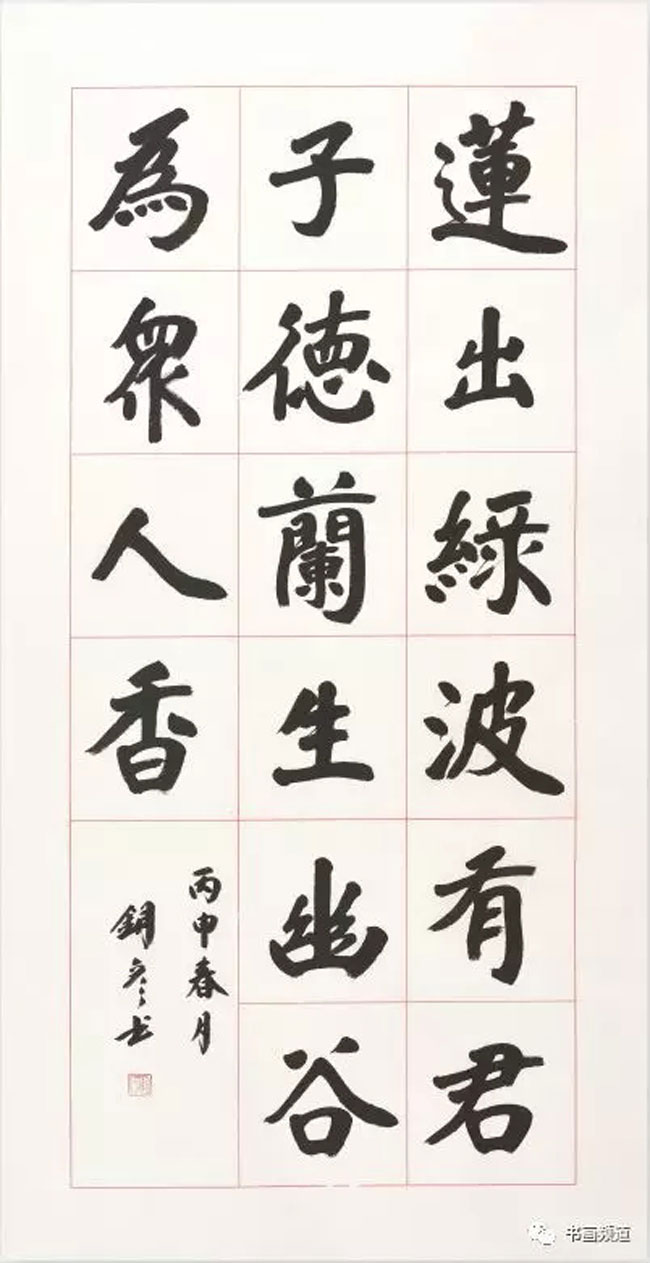 蓮出綠波有君
子德蘭生幽谷
為眾人香
丙申春月
銅彥书
书画频道